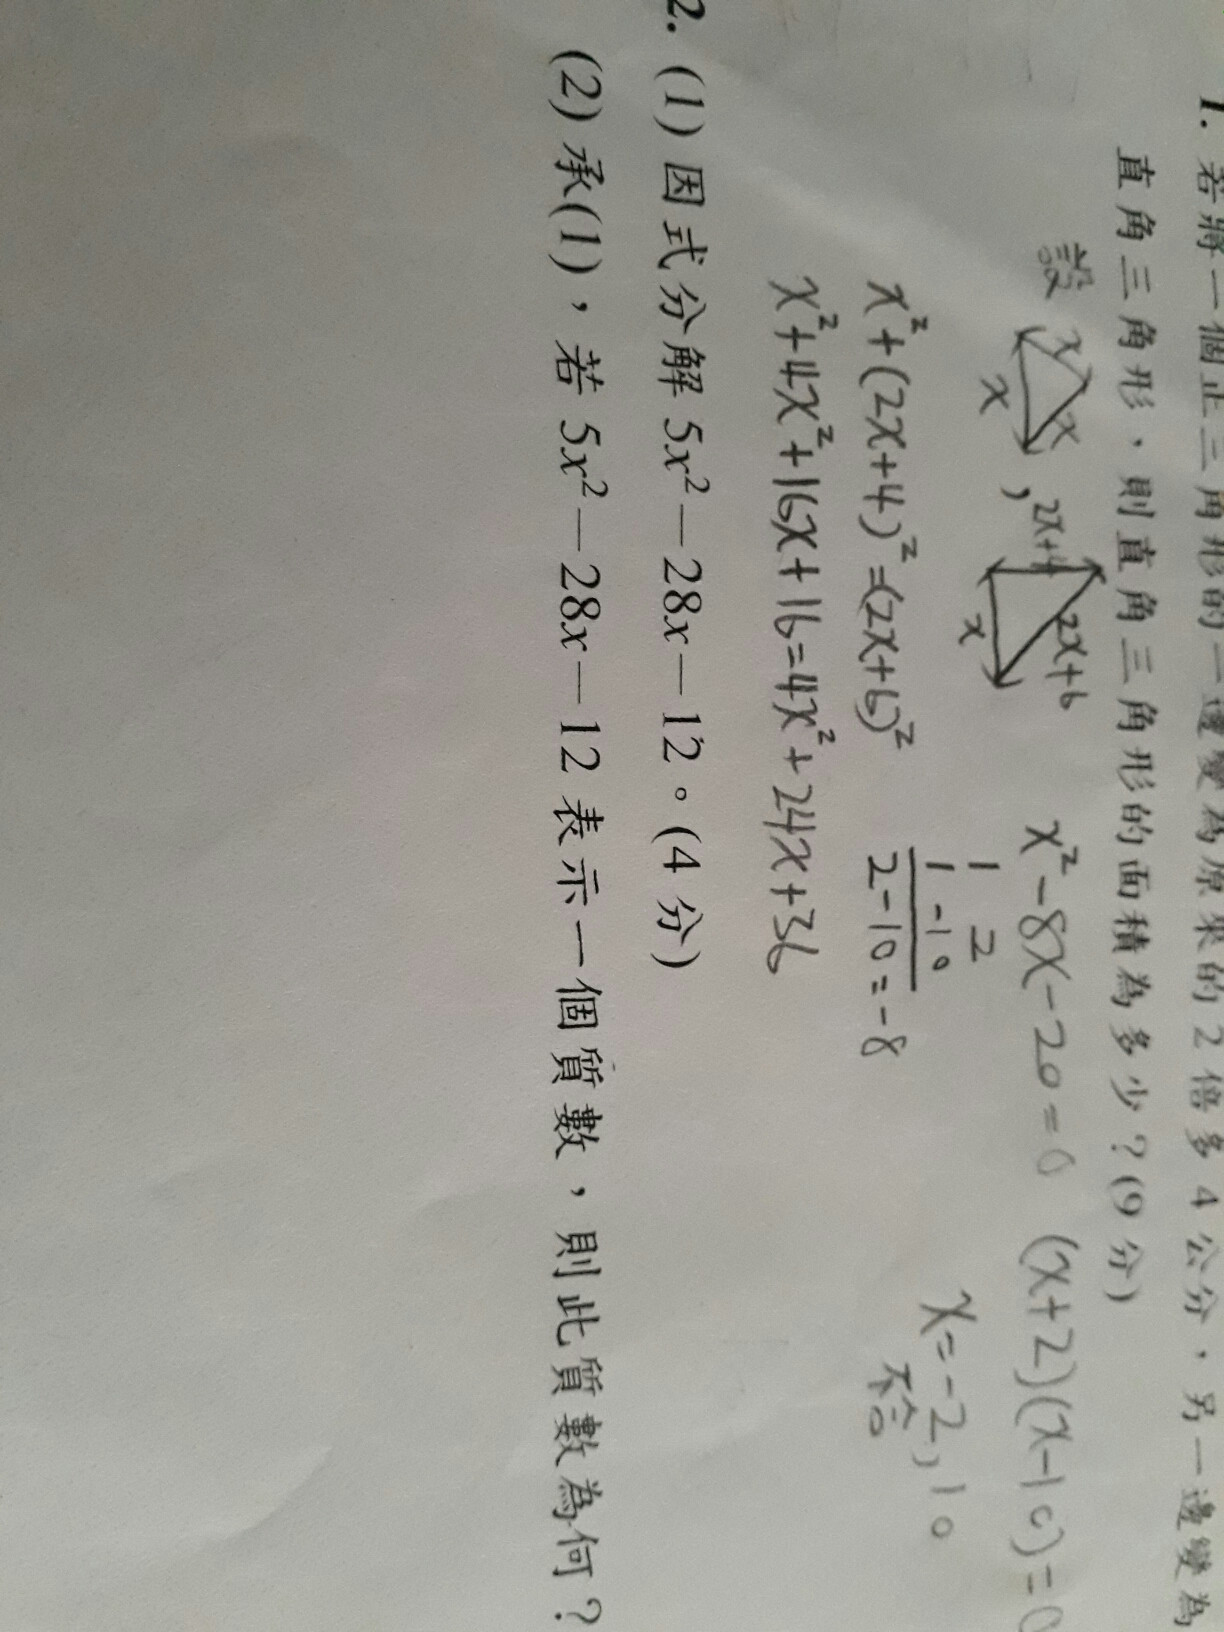 1. 若將一個正三角形的一邊變為原來的2倍多4公分，另一邊變為
直角三角形，則直角三角形的面積為多少？(9分)
設 x x x , 2x+4 2x+6 x
x²-8x-20=0 (x+2)(x-10)=0
1 2
1 -10
2-10=-8
x=-2, 10
不合
x²+(2x+4)²=(2x+6)²
x²+4x²+16x+16=4x²+24x+36
2. (1) 因式分解 5x²－28x－12。(4分)
(2) 承(1)，若 5x²－28x－12 表示一個質數，則此質數為何？